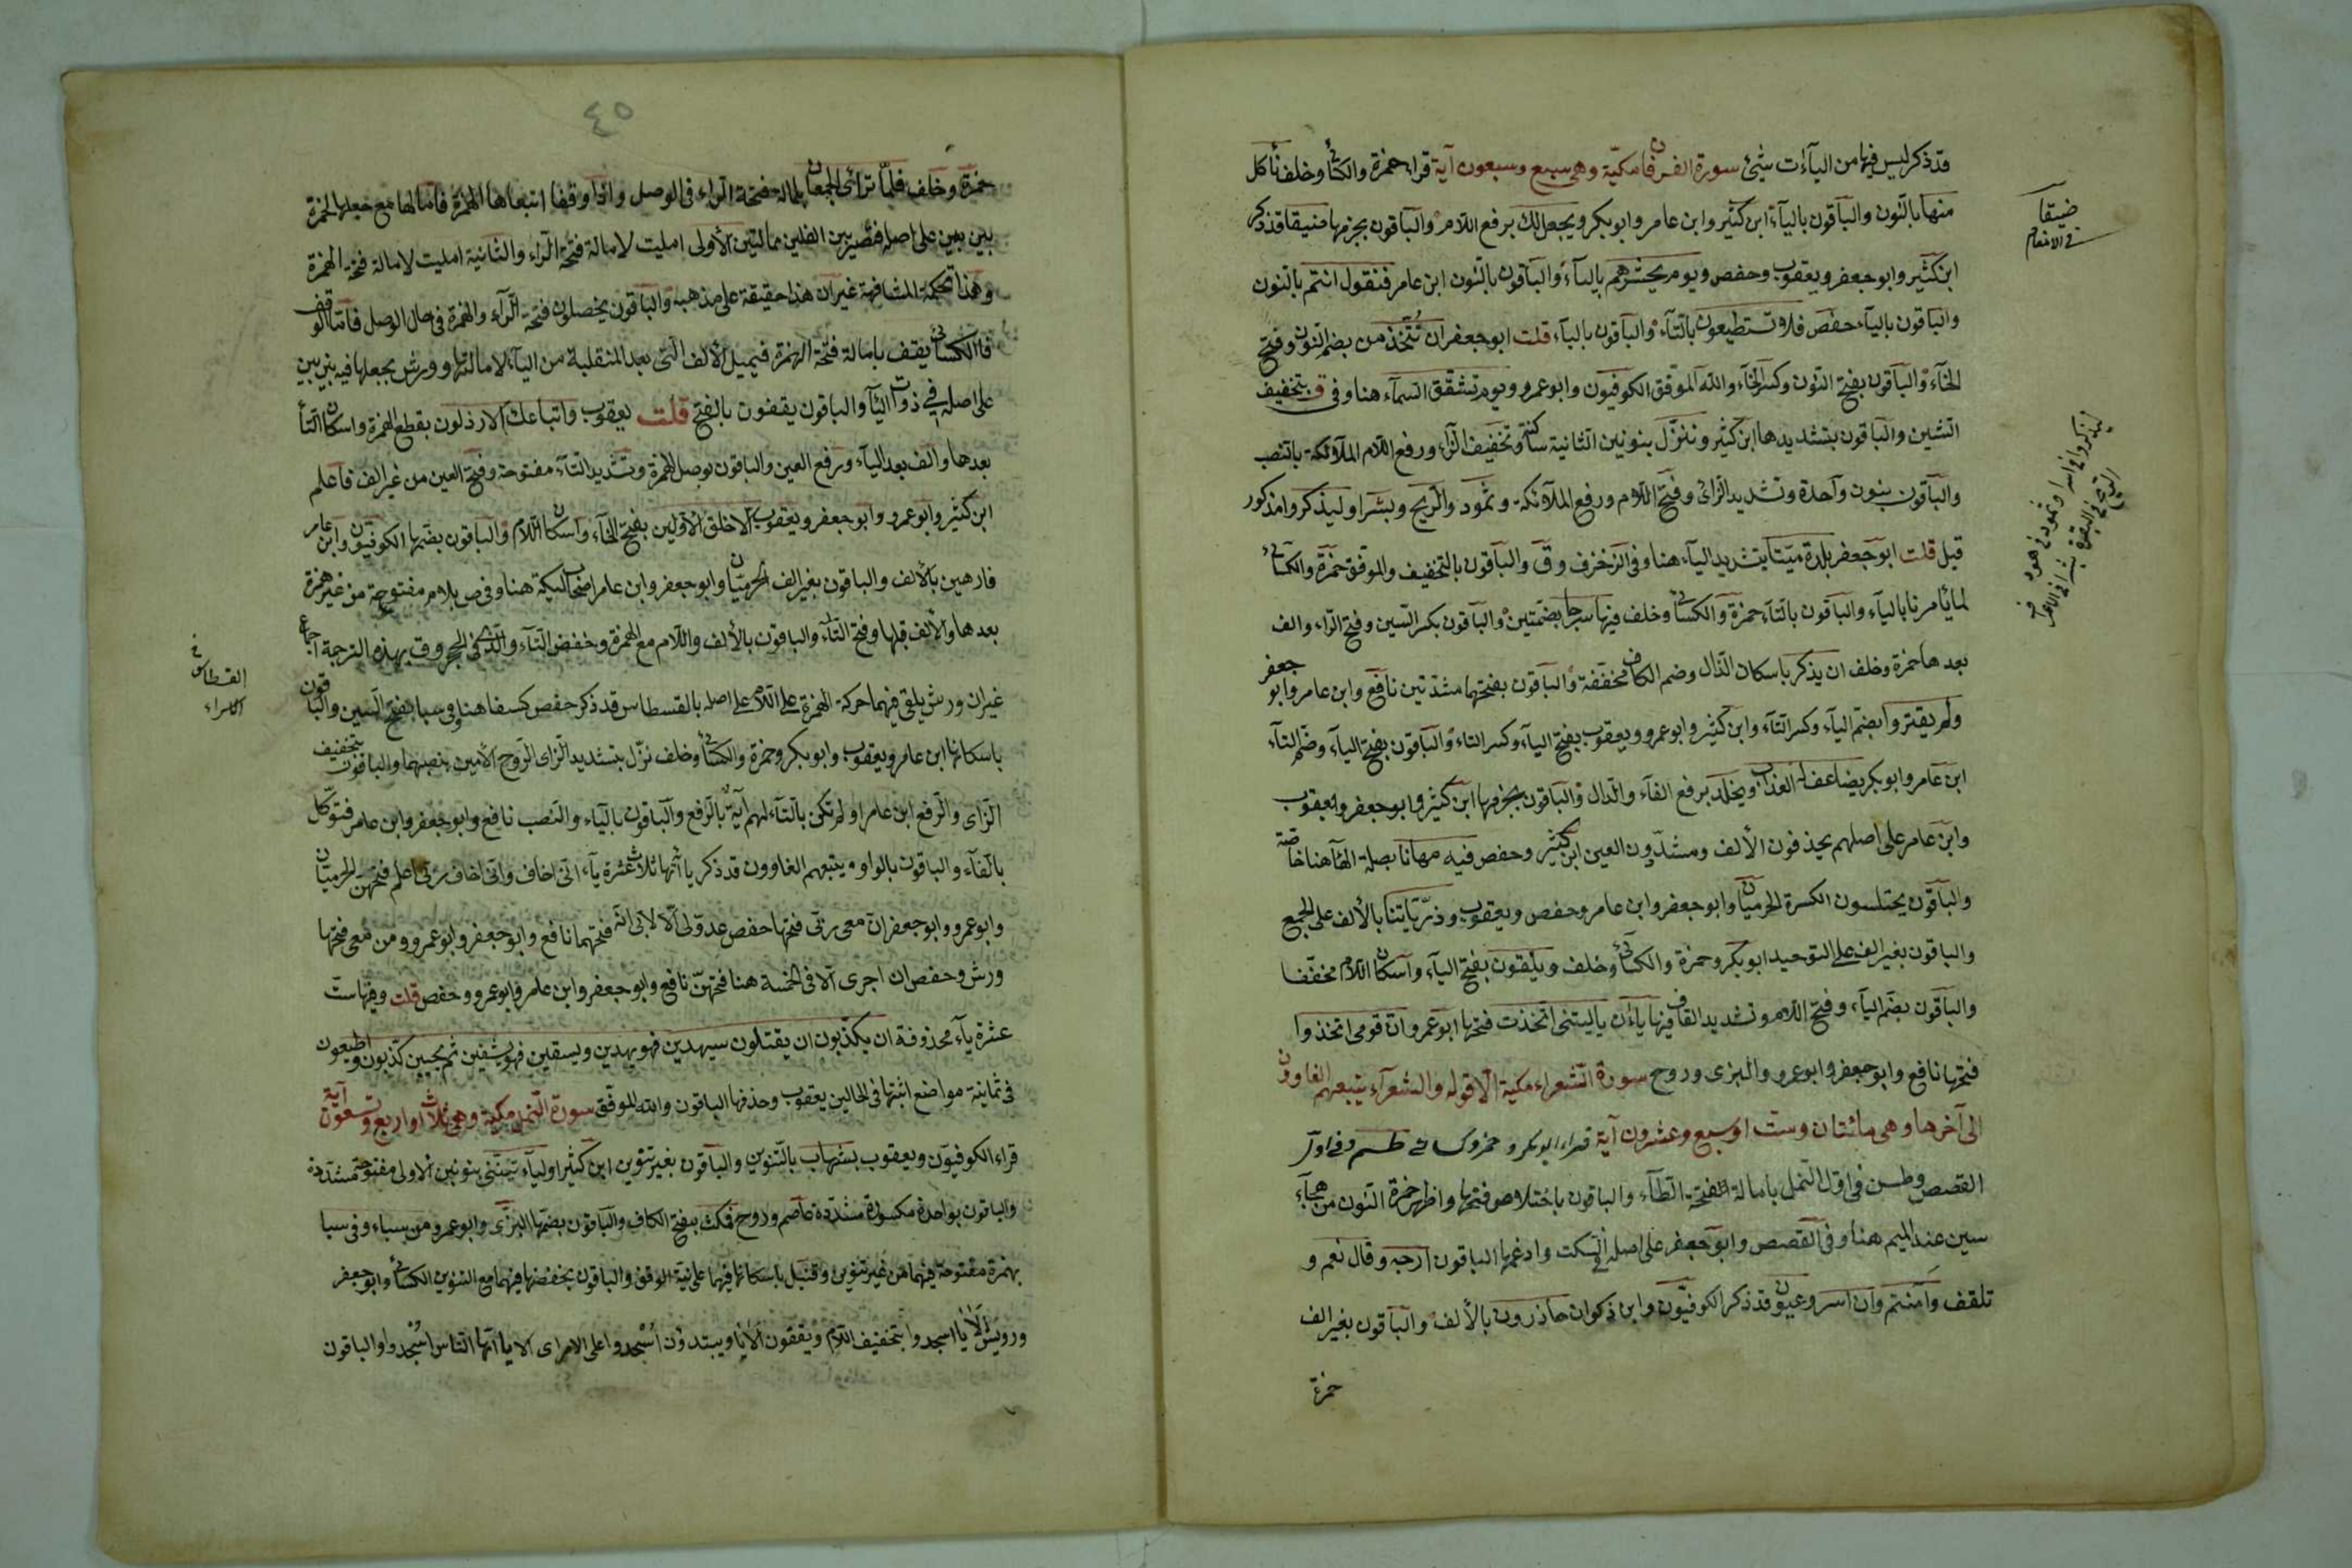 قد ذكر ليس فيها من اليآءات شئ سورة الفرقان مكيّة وهى سبع وسبعون آية قراء حمزة والكسائى وخلف نأكل
منها بالنون والباقون باليآء ابن كثير وابن عامر وابو بكر ويجعل لك برفع اللام والباقون بجزمها ضيقا قد ذكر
ابن كثير وابو جعفر ويعقوب وحفص ويوم يحشرهم باليآء والباقون بالنون ابن عامر فنقول انتم بالنون
والباقون باليآء حفص فلا تستطيعون بالتآء والباقون باليآء قلت ابو جعفر ان نُتَّخَذ من بضم النون وفتح
الخآء والباقون بفتح النون وكسر الخآء والله الموفق الكوفيون وابو عمرو ويوم تشقق السمآء هنا وفى ق بتخفيف
الشين والباقون بتشديدها ابن كثير وننزّل بنونين الثانية ساكنة وتخفيف الزاء ورفع اللام الملائكة بالنصب
والباقون بنون واحدة وتشديد الزاى وفتح اللام ورفع الملائكة وثمود والريح وبشرا وليذكروا مذكور
قبل قلت ابو جعفر بلدة ميّتا بتشديد اليآء هنا وفى الزخرف وق والباقون بالتخفيف والموفق حمزة والكسائى
لما يأمرنا باليآء والباقون بالتآء حمزة والكسائى وخلف فيها سرجا بضمتين والباقون بكسر السين وفتح الراء والف
بعدها حمزة وخلف ان يذكر باسكان الذال وضم الكاف مخففة والباقون بفتحهما مشدّتين نافع وابن عامر وابو جعفر
ولم يقتروا بضم اليآء وكسر التآء وابن كثير وابو عمرو ويعقوب بفتح اليآء وكسر التاء والباقون بفتح اليآء وضم التآء
ابن عامر وابو بكر يضاعف له العذاب ويخلد برفع الفآء والدال والباقون بجزمها ابن كثير وابو جعفر ويعقوب
وابن عامر على اصلهم يحذفون الألف ومشدّون العين ابن كثير وحفص فيه مهانا بصلة الهآء هنا خاصّة
والباقون يختلسون الكسرة الحرميان وابو جعفر وابن عامر وحفص ويعقوب وذرّيّاتنا بالألف على الجمع
والباقون بغير الف على التوحيد ابو بكر وحمزة والكسائى وخلف ويلقون بفتح اليآء واسكان اللام مخففا
والباقون بضم اليآء وفتح اللام وتشديد القاف فيها ياءان ياليتنى اتخذت فتحها ابو عمرو وانّ قومى اتخذوا
فتحها نافع وابو جعفر وابو عمرو والبزى وروح سورة الشعراء مكية الا قوله والشعرآء يتبعهم الغاوون
الى آخرها وهى مائتان وست او سبع وعشرون آية قراء ابو بكر وحمزة وكسائى طسم وفى اول
القصص وطس فى اول النمل بامالة فتحة الطآء والباقون باختلاص فتحها واظهر حمزة النون من هجآء
سين عند الميم هنا وفى القصص وابو جعفر على اصله فى السكت وادغمها الباقون ارجه وقال نعم و
تلقف وآمنتم وان اسر وعيون قد ذكر الكوفيون وابن ذكوان حاذرون بالألف والباقون بغير الف
حمزة
ضيقا
فى الانعام
٤٥
حمزة وخلف فلمّا ترائى الجمعان بامالة فتحة الراء فى الوصل واذا وقفا اتبعاها الهمزة فامالها مع جعلها الحمزة
بين بين على اصله فتصير بين الفين ممالتين الأولى اميلت لامالة فتحة الراء والثانية اميلت لامالة فتحة الهمزة
وهذا تحكمه المشافهة غير ان هذا حقيقة على مذهبه والباقون يخصلون فتحة الراء والهمزة فى حال الوصل فامّا الوقف
فالكسائى يقف بامالة فتحة الهمزة فيميل الألف التى بعد المنقلبة من اليآء لامالتها وورش يجعلها فيه بين بين
على اصله فى ذوات اليآء والباقون يقفون بالفتح قلت يعقوب واتباعك الارذلون بقطع الهمزة واسكان التآء
بعدها والف بعد اليآء ورفع العين والباقون بوصل الهمزة وتشديد التآء مفتوحة وفتح العين من غير الف فاعلم
ابن كثير وابو عمرو وابو جعفر ويعقوب الا خلق الأولين بفتح الخآء واسكان اللام والباقون بضمها الكوفيون وابن عامر
فارهين بالألف والباقون بغير الف الحرميان وابو جعفر وابن عامر اصحاب ليكة هنا وفى ص بلام مفتوحة من غير همزة
بعدها والألف قبلها وفتح التآء والباقون بالألف واللام مع الهمزة وخفض التآء والذى فى الحجر وق بهذه الترجمة اجماع
غير ان ورش يلقى فيهما حركة الهمزة على اللام على اصله بالقسطاس قد ذكر حفص كسفا هنا وفى سبا بفتح السين والباقون
باسكانها ابن عامر ويعقوب وابو بكر وحمزة والكسائى وخلف نزّل بتشديد الزاى الروح الأمين بنصبهما والباقون بتخفيف
الزاى والرفع ابن عامر اولم تكن بالتآء لهم آية بالرفع والباقون باليآء والنصب نافع وابو جعفر وابن عامر فتوكّل
بالفآء والباقون بالواو يتبعهم الغاوون قد ذكر يا أتها ثلاث عشرة يآء انى اخاف وانى اخاف ربى اعلم فتحهن الحرميان
وابو عمرو وابو جعفر انّ معى ربّى فتحها حفص عدوّلى الّا لابى انه فتحهما نافع وابو جعفر وابو عمرو ومن معى فتحها
ورش وحفص ان اجرى الا فى الخمسة هنا فتحهنّ نافع وابو جعفر وابن عامر وابو عمرو وحفص قلت وفيها ست
عشرة يآء محذوفة ان يكذبون ان يقتلون سيهدين فهو يهدين ويسقين فهو يشفين ثم يحيين كذّبون واطيعون
فى ثمانية مواضع اثبتها فى الحالين يعقوب وحذفها الباقون والله الموفق سورة النمل مكية وهى ثلاث او اربع وتسعون آية
قراء الكوفيون ويعقوب بشهاب بالتنوين والباقون بغير تنوين ابن كثير اوليآء تينّنى بنونين الاولى مفتوحة مشدّدة
والباقون بواحدة مكسورة مشدّدة عاصم وروح فمكث بفتح الكاف والباقون بضمها البزّى وابو عمرو من سباء وفى سبا
بهمزة مفتوحة فيهما من غير تنوين وقنبل باسكانها فيهما على نيّة الوقف والباقون بخفضها فيهما مع التنوين الكسائى وابو جعفر
ورويس الا يا اسجدوا بتخفيف اللام ويقفون الا يا ويبتدؤن اُسْجدوا على الامر اى الا يا ايّها الناس اسْجدوا والباقون
القسطاس فى
الاسراء